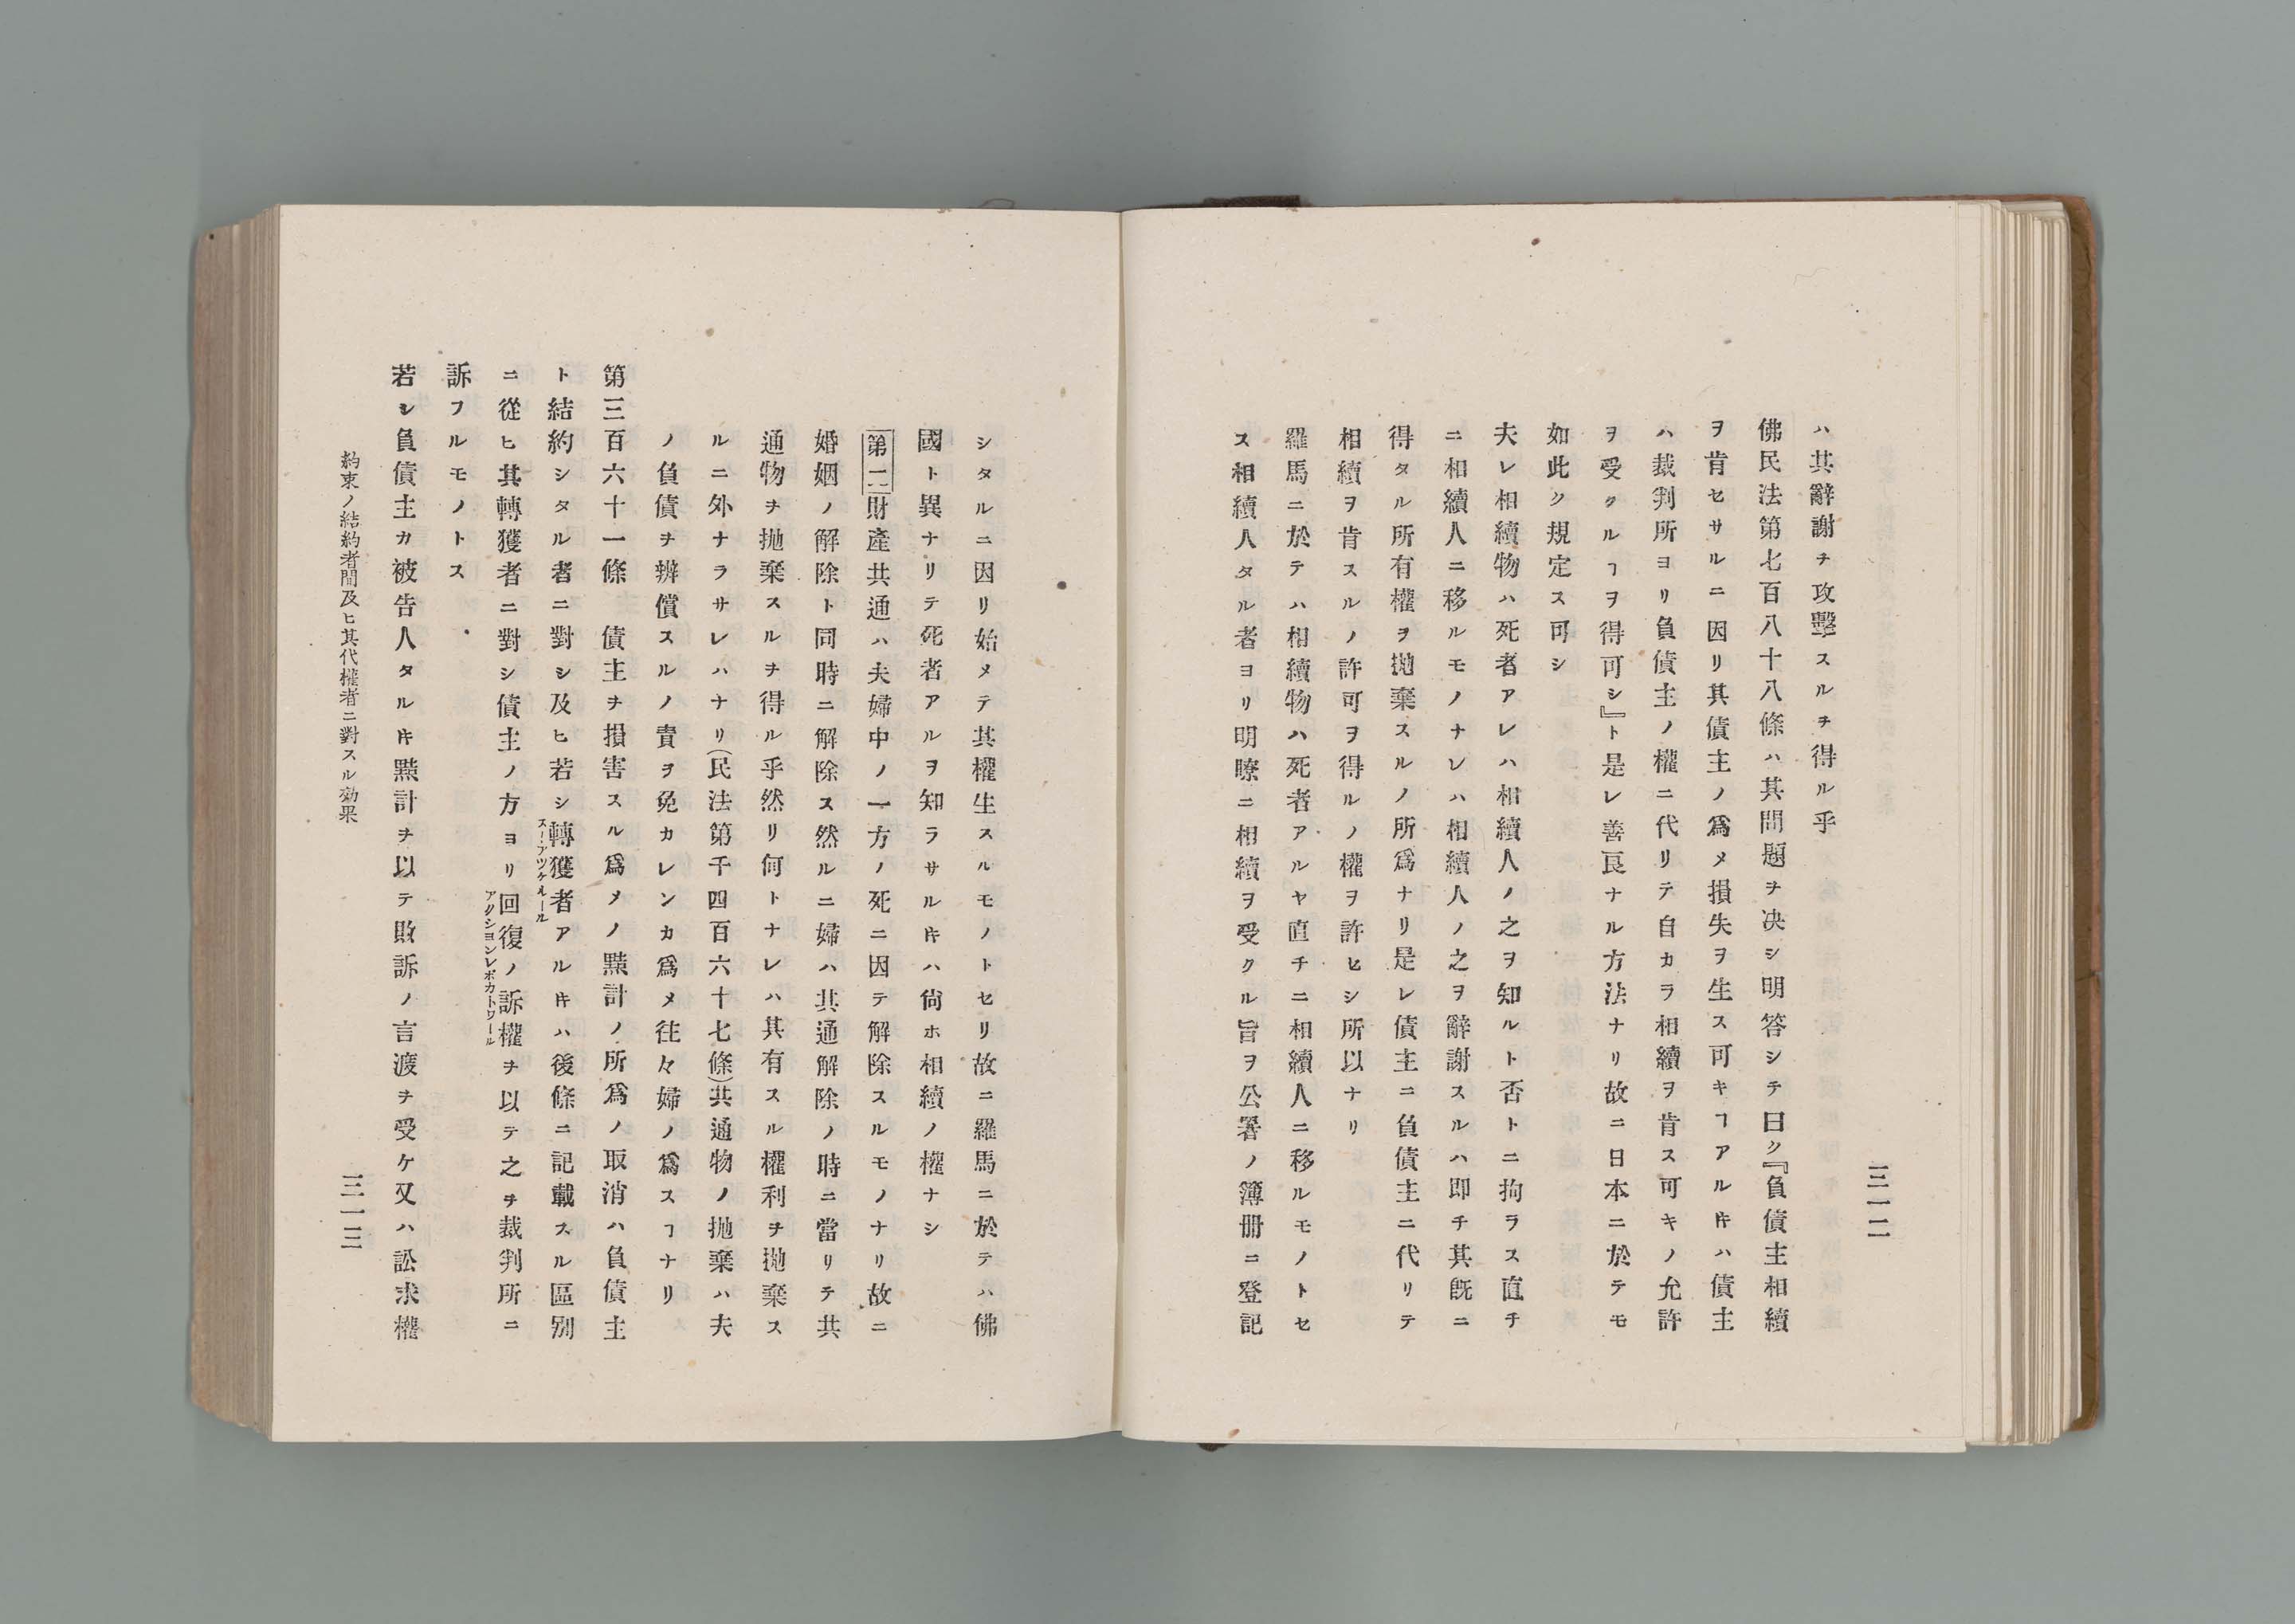 三一二
ハ其辭謝チ攻擊スルヲ得ル乎
佛民法第七百八十八條ハ其問題チ决シ明答シテ曰ク『負債主相續
ヲ肯セサルニ因リ其債主ノ爲メ損失ヲ生ス可キヿアルキハ債主
ハ裁判所ヨリ負債主ノ權ニ代リテ自カラ相續ヲ肯ス可キノ允許
ヲ受クルヿヲ得可シ』ト是レ善良ナル方法ナリ故ニ日本ニ於テモ
如此ク規定ス可シ
夫レ相續物ハ死者アレハ相續人ノ之ヲ知ルト否トニ拘ラス直チ
ニ相續人ニ移ルモノナレハ相續人ノ之ヲ辭謝スルハ即チ其既ニ
得タル所有權ヲ拋棄スルノ所爲ナリ是レ債主ニ負債主ニ代リテ
相續ヲ肯スルノ許可ヲ得ルノ權ヲ許ヒシ所以ナリ
羅馬ニ於テハ相續物ハ死者アルヤ直チニ相續人ニ移ルモノトセ
ス相續人タル者ヨリ明瞭ニ相續ヲ受クル旨ヲ公署ノ簿冊ニ登記
シタルニ因リ始メテ其權生スルモノトセリ故ニ羅馬ニ於テハ佛
國ト異ナリテ死者アルヲ知ラサルキハ尙ホ相續ノ權ナシ
第二財產共通ハ夫婦中ノ一方ノ死ニ因テ解除スルモノナリ故ニ
婚姻ノ解除ト同時ニ解除ス然ルニ婦ハ其通解除ノ時ニ當リテ共
通物ヲ拋棄スルヲ得ル乎然リ何トナレハ其有スル權利ヲ拋棄ス
ルニ外ナラサレハナリ(民法第千四百六十七條)共通物ノ拋棄ハ夫
ノ負債ヲ辨償スルノ責ヲ免カレンカ爲メ往々婦ノ爲スヿナリ
第三百六十一條 債主ヲ損害スル爲メノ黠計ノ所爲ノ取消ハ負債主
ト結約シタル者ニ對シ及ヒ若シ轉獲者アルキハ後條ニ記載スル區別
スーアツケルール
ニ從ヒ其轉獲者ニ對シ債主ノ方ヨリ回復ノ訴權ヲ以テ之ヲ裁判所ニ
アクションレボカトワール
訴フルモノトス
若シ負債主カ被告人タルキ黠計ヲ以テ敗訴ノ言渡ヲ受ケ又ハ訟求權
約束ノ結約者間及ヒ其代權者ニ對スル効果
三一三